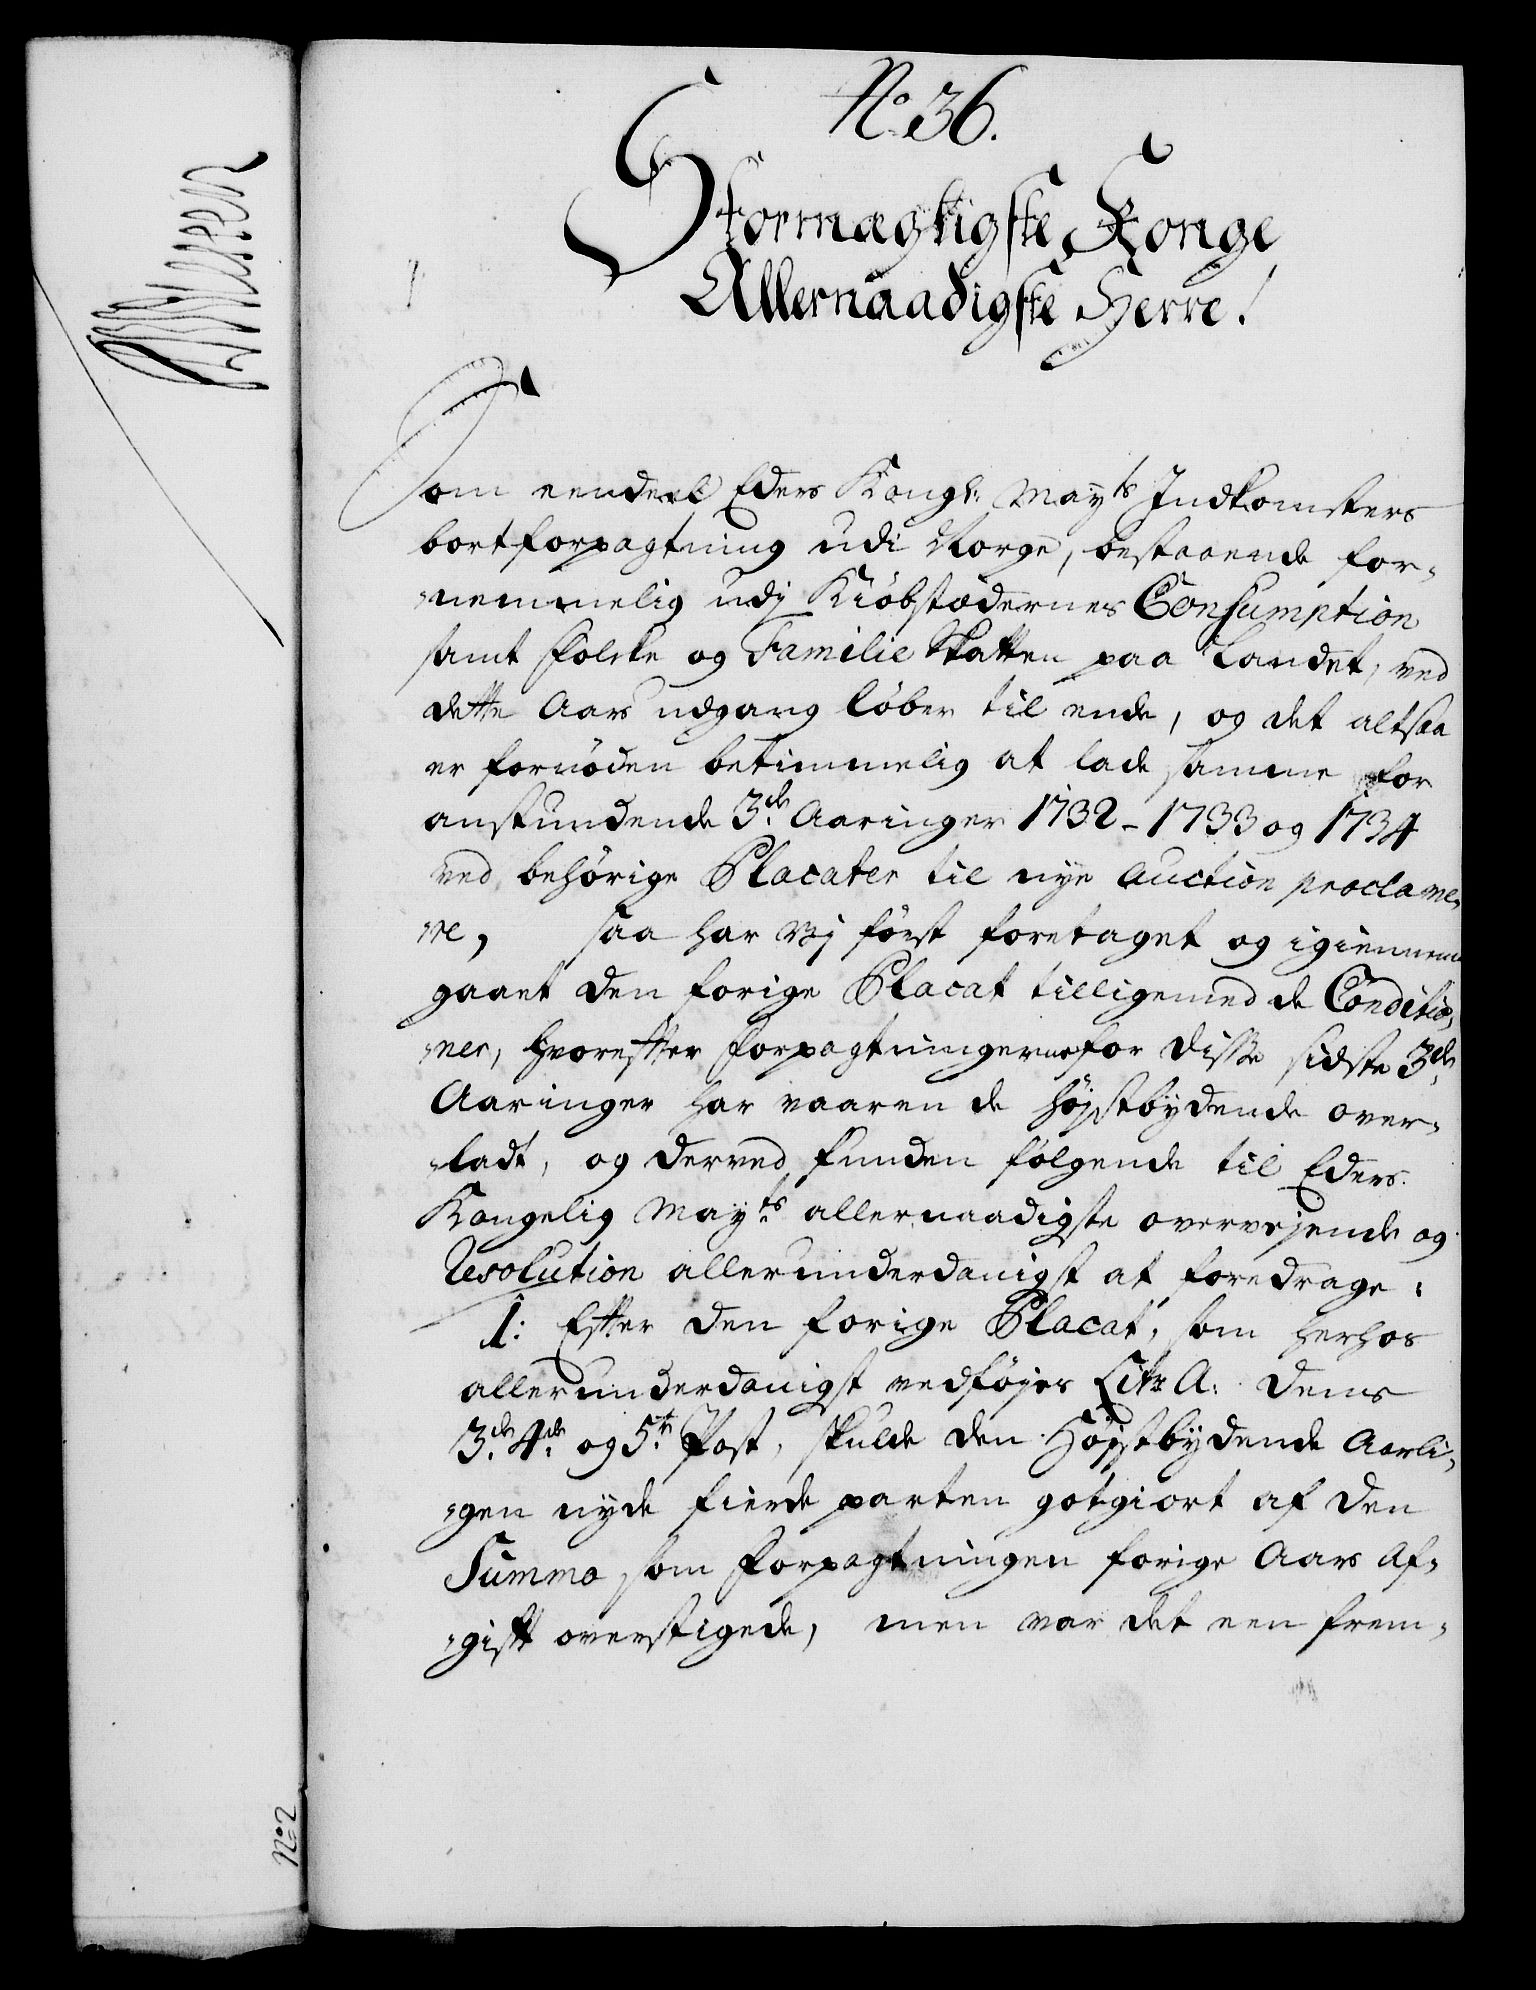 No 36.
Stormægtigste Konge
Allernaadigste Herre!
Som eendeel Eders Kongl: Mayts Indkomsters
bortforpagtning udi Norge, bestaaende for-
nemmelig udj Kiöbstædernes Consumption
samt Folcke og Familie Skatten paa Landet, ved
dette Aars udgang löber til ende, og det altsaa
er fornöden betimmelig at lade samme for
anstundende 3de Aaringer 1732 - 1733 og 1734
ved behörige Placater til nye Auction proclame-
re, saa har Vj först foretaget og igiennem
gaaet den forige Placat tilligemed de Conditio-
ner, hvorefter Forpagtningerne for disse sidste 3de
Aaringer har vaaren de höjstbydende over-
ladt, og derved funden fölgende til Eders
Kongelig Mayts allernaadigste overvejende og
Resolution allerunderdanigst at foredrage:
1: Efter den forige Placat, som herhos
allerunderdanigst vedföjes Litr A: dens
3de 4de og 5te Post, skulde den Höjstbydende Aarli-
gen nyde fierde parten gotgiort af den
Summa som Forpagtningen forige Aars Af-
gift overstigede, men var det een frem-
No 2